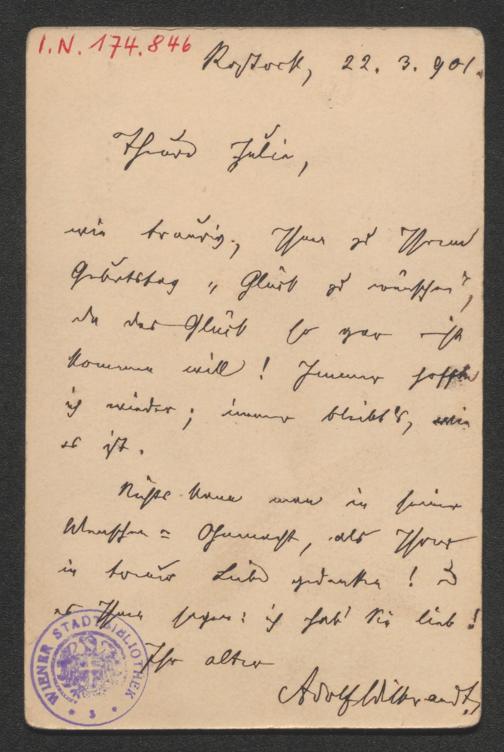 I.N. 174.846
Rostock, 22. 3. 901.
Theure Julie,
wie traurig, Ihnen zu Ihrem
Geburtstag „Glück zu wünschen“,
da das Glück so gar nicht
kommen will! Immer hoffte
ich wieder; immer bleibt's, wie
es ist.
Nichts kann man in seiner
Menschen=Ohnmacht, als Ihrer
in treuer Liebe gedenken!
es Ihnen sagen: ich hab' Sie lieb!
Ihr alter
Adolf Wilbrandt.
WIENER STADTBIBLIOTHEK